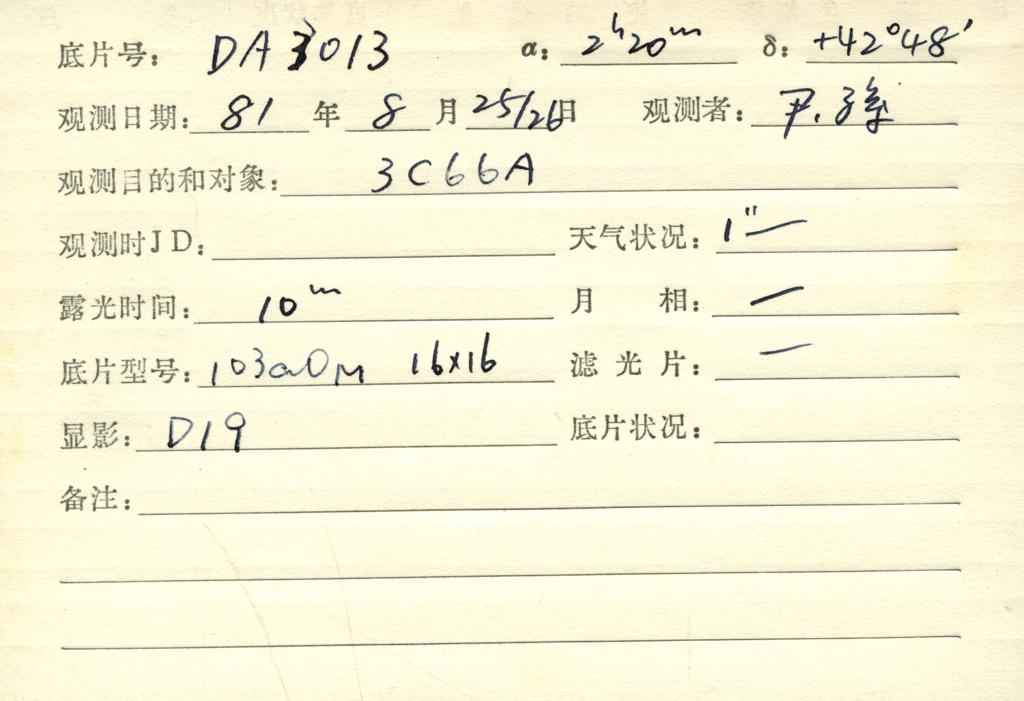 底片号: DA3013 α: 2ʰ20ᵐ δ: +42°48′
观测日期: 81 年 8 月 25/26日 观测者: 尹.孙
观测目的和对象: 3C66A
观测时JD: 天气状况: 1″一
露光时间: 10ᵐ 月 相: 一
底片型号: 103aO 16×16 滤光片: 一
显影: D19 底片状况:
备注: